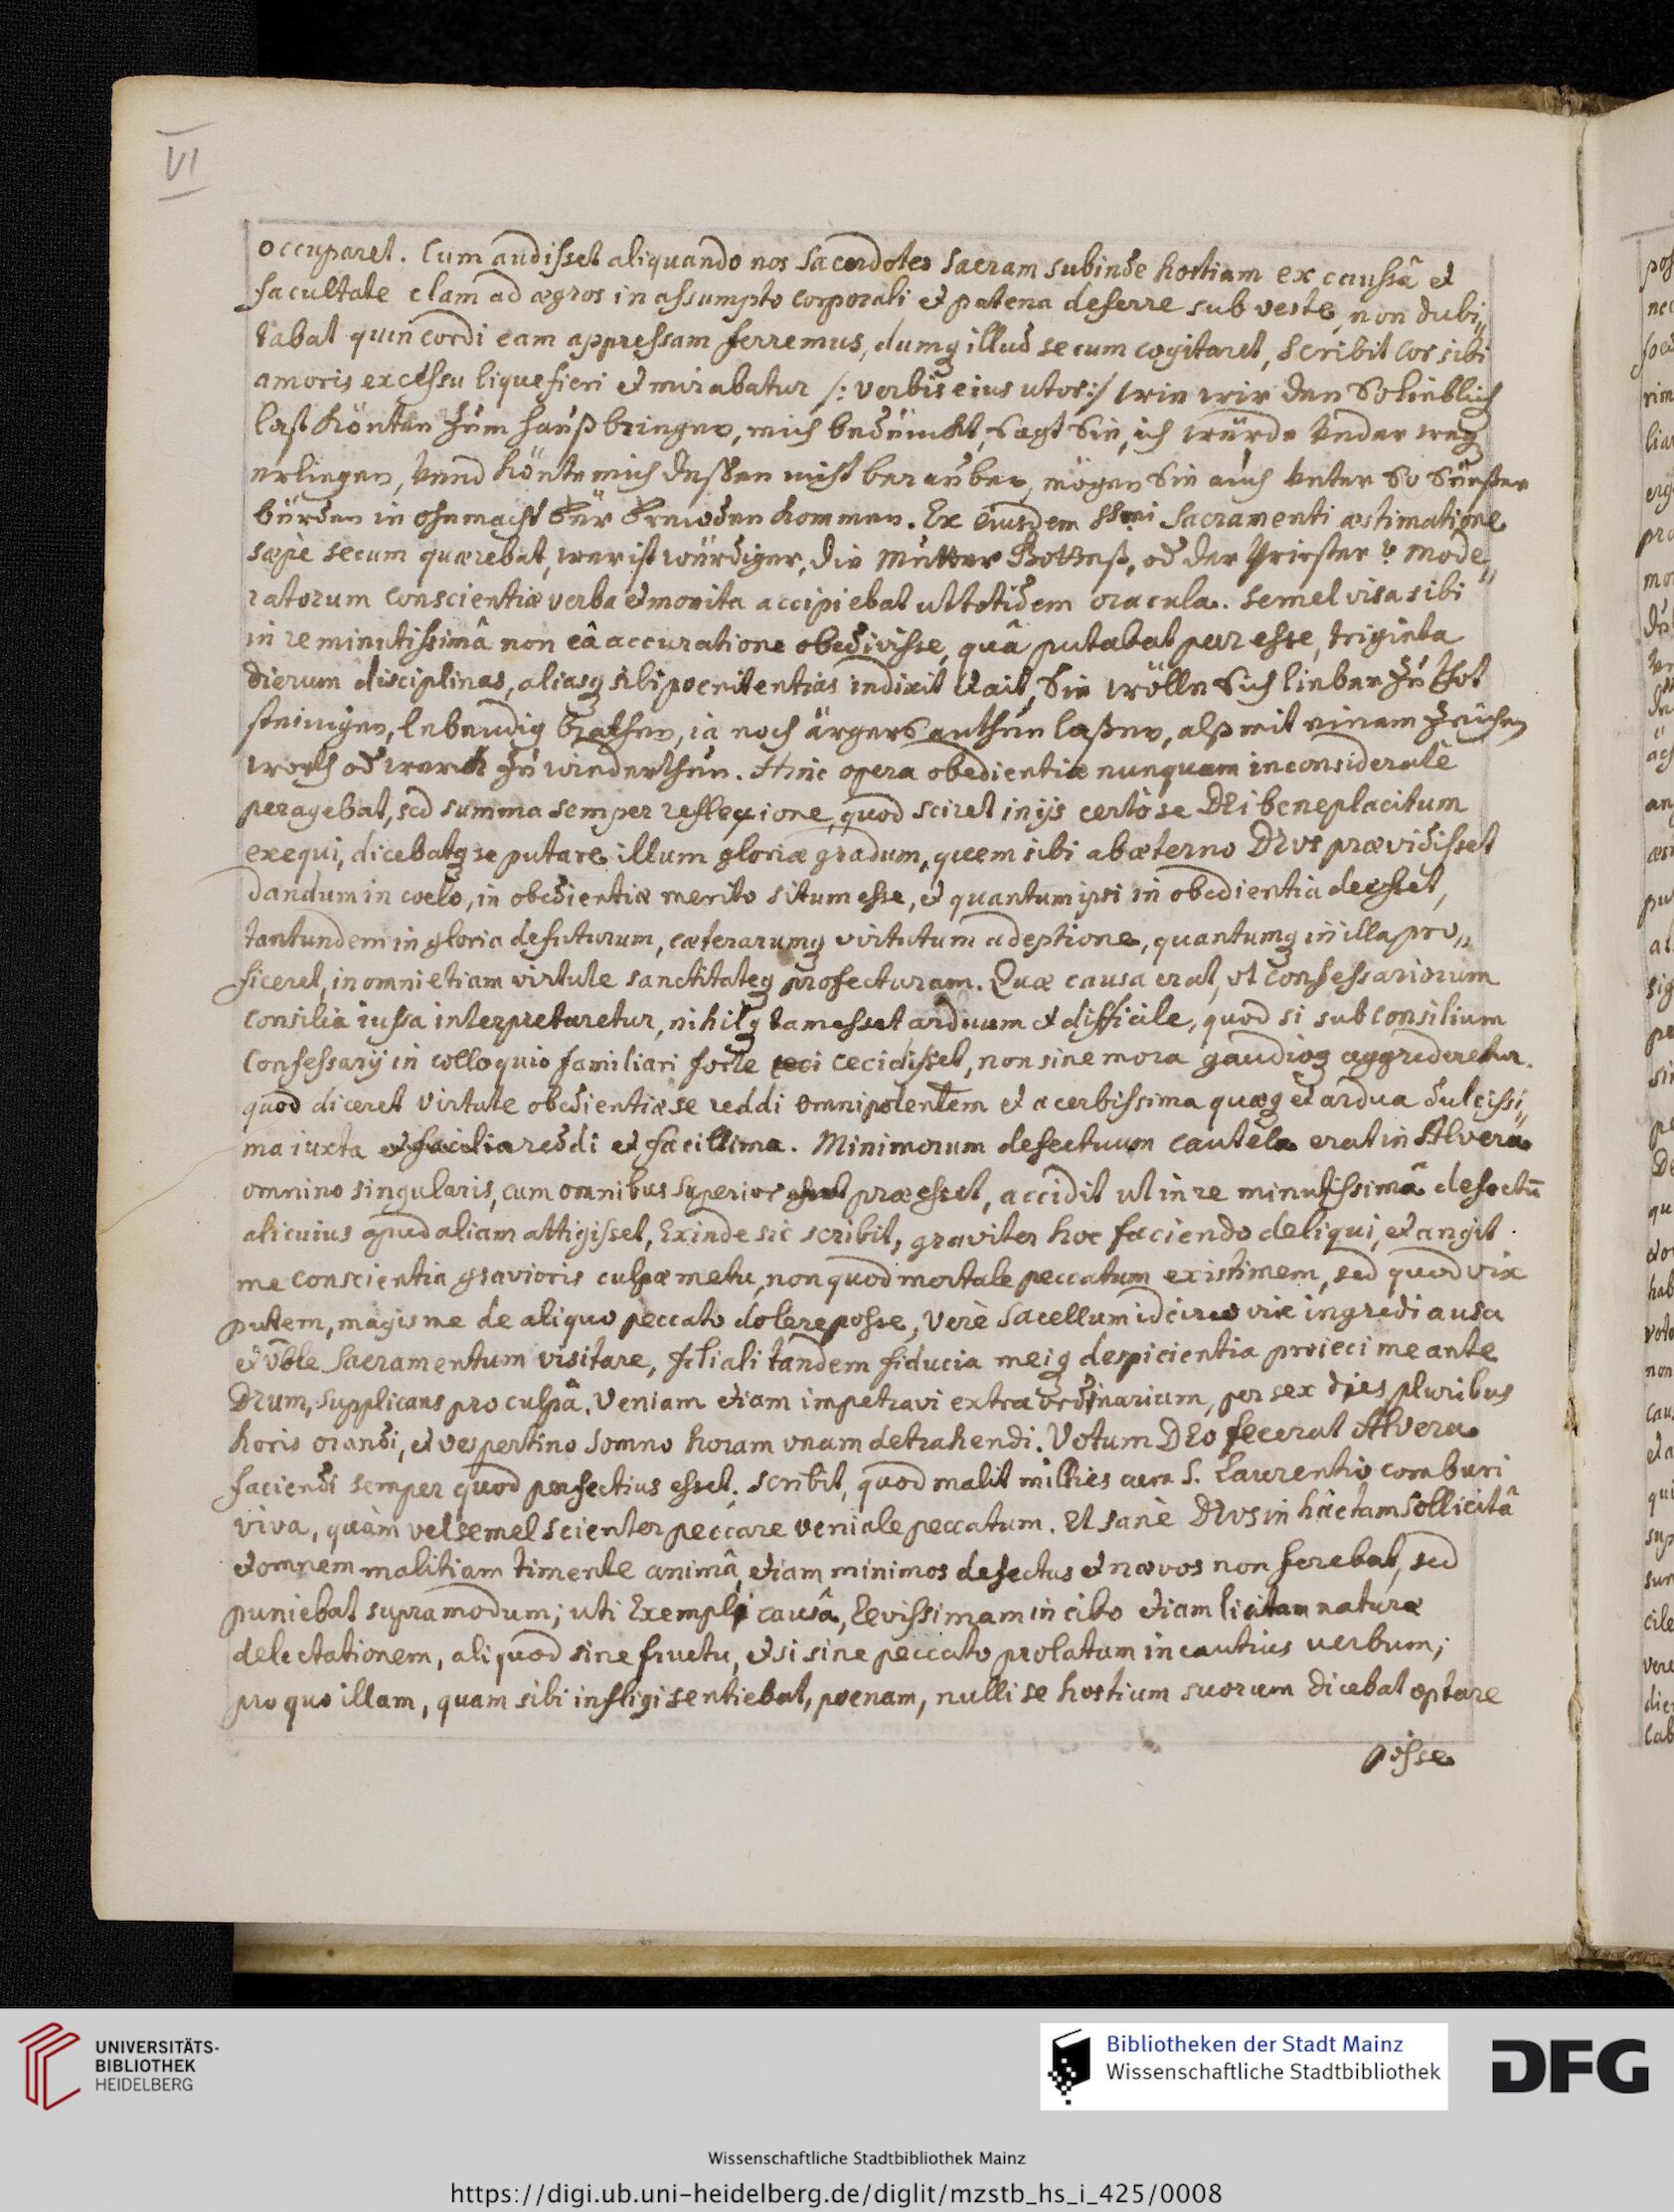 VI
occuparet. Cum audisset aliquando nos Sacerdotes Sacram subinde hostiam ex caussâ et
facultate clam ad ægros in assumpto corporali et patena deferre sub veste, non dubi„
tabat quin cordi eam appressam ferremus, dumq illud secum cogitaret, scribit cor sibi
amoris excessu liquefieri et mirabatur /: verbis eius utor :/ wie wir den so lieblich
last könten zum hauß bringen, mich bedünckt, sagt sie, ich würde under weg
erliegen, vnnd könte mich dessen nicht berauben, mögen Sie auch unter so süeßer
bürden in ohnmacht für freüden kommen. Ex eiusdem SSmi Sacramenti æstimatione
sæpè secum quærebat, wer ist würdiger, die Mutter Gotteß, od der Priester? Mode„
ratorum conscientiæ verba et monita accipiebat ut totidem oracula. Semel visa sibi
in re minutissimâ non eâ accuratione obedivisse, quâ putabat par esse, triginta
dierum disciplinas, aliasq sibi poenitentias indixit et ait, Sie wölle sich lieber zu thot
steinigen, lebendig brathen, ia noch ärgers anthun laßen, alß mit einem zeichen
worth od werck zu wiederthun. Hinc opera obedientiæ nunquam inconsideratè
peragebat, sed summa semper reflexione, quod sciret in ijs certò se DEi beneplacitum
exequi, dicebatq se putare illum gloriæ gradum, quem sibi ab æterno DEvs prævidisset
dandum in coelo, in obedientiæ merito situm esse, et quantum ipsi in obedientia deesset,
tantundem in gloria defuturum, cæterarumq virtutum adeptione, quantumq in illa pro„
ficeret, in omni etiam virtute sanctitateq profecturam. Quæ causa erat, vt Confessariorum
consilia iussa interpretaretur, nihilq tam esset arduum et difficile, quod si sub consilium
Confessarij in colloquio familiari forte cecidisset, non sine mora gaudioq aggrederetur.
quod diceret virtute obedientiæ se reddi omnipotentem et acerbissima quæq et ardua dulcissi„
ma iuxta reddi et facillima. Minimorum defectuum cautela erat in Alvera
omnino singularis, cum omnibus Superior præesset, accidit ut in re minutissimâ defectū
alicuius apud aliam attigisset, Exinde sic scribit, graviter hoc faciendo deliqui, et angit
me conscientia gravioris culpæ metu, non quod mortale peccatum existimem, sed quod vix
putem, magis me de aliquo peccato dolere posse, Verè Sacellum idcirco vix ingredi ausa
et vble Sacramentum visitare, filiali tandem fiducia meiq despicientia proieci me ante
DEum, supplicans pro culpâ. Veniam etiam impetravi extraordinarium, per sex dies pluribus
horis orandi, et vespertino somno horam vnam detrahendi. Votum DEo fecerat Alvera
faciendi semper quod perfectius esset. scribit, quod malit millies cum S. Laurentio comburi
viva, quàm vel semel scienter peccare veniale peccatum. Et sanè DEvs in hâc tam sollicitâ
et omnem malitiam timente animâ, etiam minimos defectus et nævos non ferebat, sed
puniebat supra modum; uti Exempli causâ, levissimam in cibo etiam licitam naturæ
delectationem, aliquod sine fructu, etsi sine peccato prolatum incautius verbum;
pro quo illam, quam sibi infligi sentiebat, poenam, nulli se hostium suorum dicebat optare
posse
UNIVERSITÄTS-
BIBLIOTHEK
HEIDELBERG
Bibliotheken der Stadt Mainz
Wissenschaftliche Stadtbibliothek
DFG
Wissenschaftliche Stadtbibliothek Mainz
https://digi.ub.uni-heidelberg.de/diglit/mzstb_hs_i_425/0008